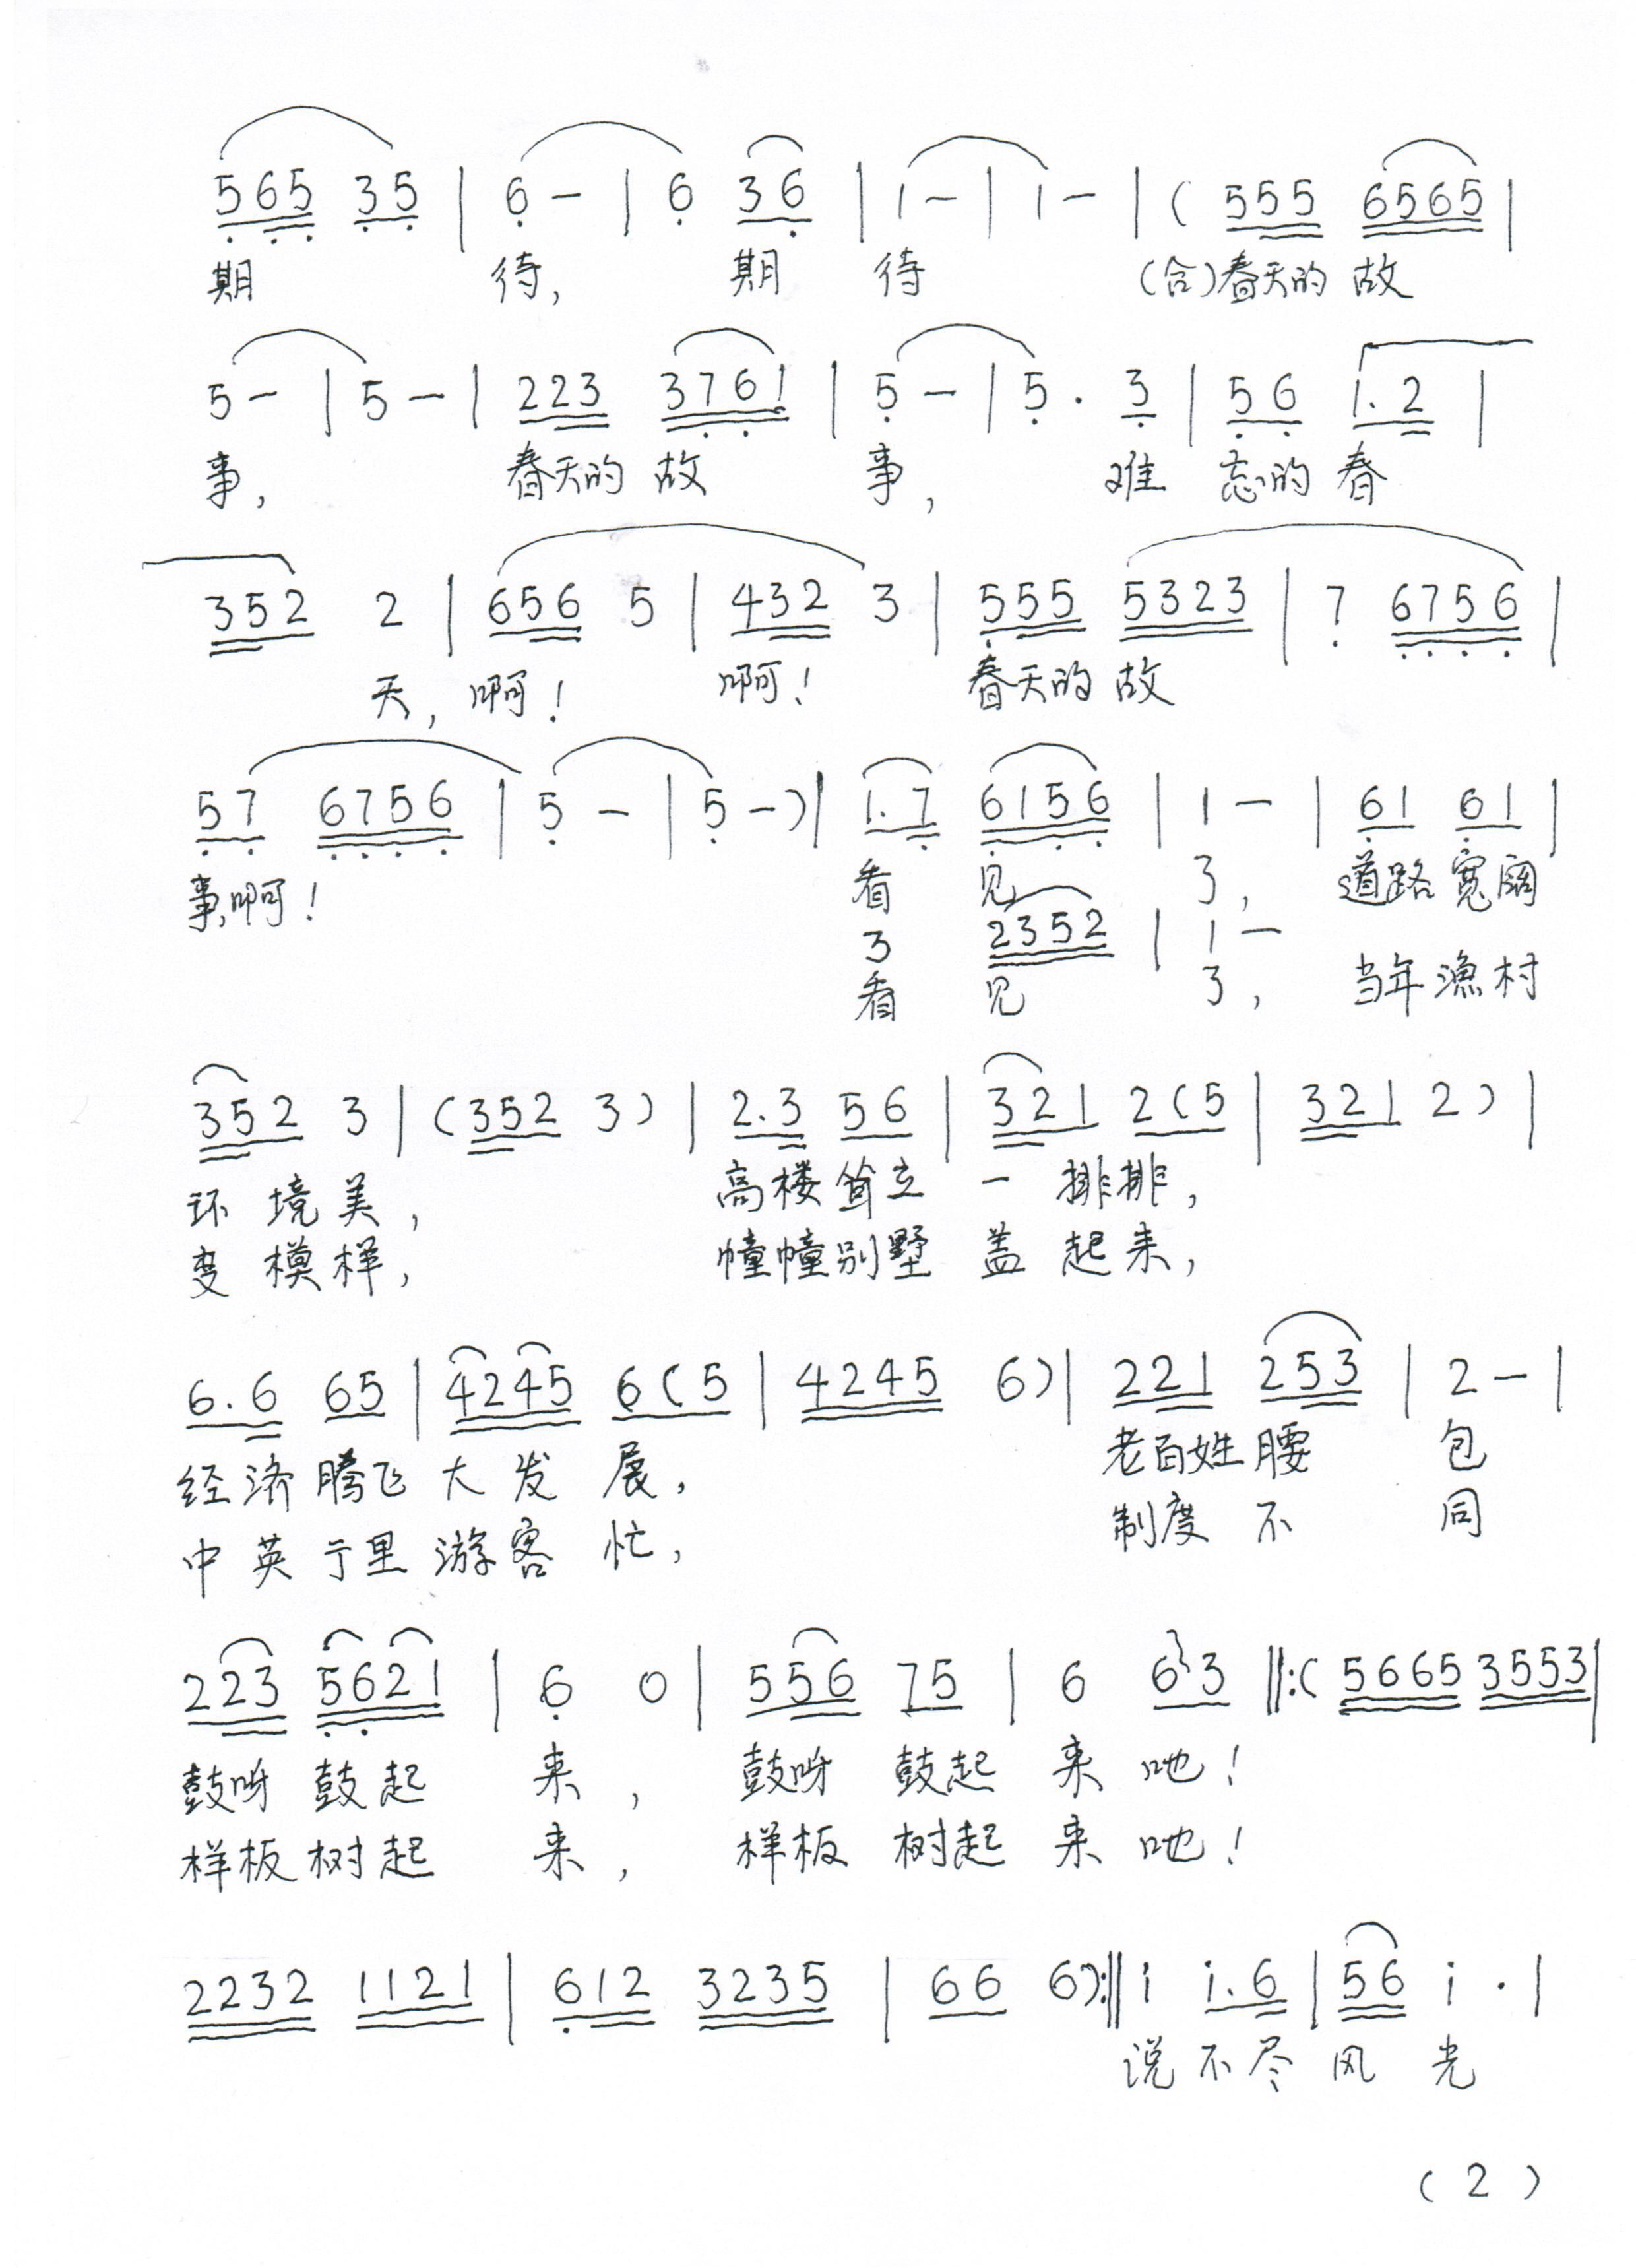 565 35 | 6 - | 6 36 | 1 - | 1 - | ( 555 6565 |
期 待, 期 待 (合)春天的 故
5 - | 5 - | 223 3761 | 5 - | 5 · 3 | 56 1.2 |
事, 春天的 故 事, 难 忘的 春
352 2 | 656 5 | 432 3 | 555 5323 | 7 6756 |
天, 啊! 啊! 春天的 故
57 6756 | 5 - | 5 - ) | 1.7 6156 | 1 - | 61 61 |
事,啊! 看 见 了, 道路 宽阔
2352 | 1 -
看 见 了, 当年 渔村
352 3 | ( 352 3 ) | 2.3 56 | 321 2 ( 5 | 321 2 ) |
环 境 美, 高楼 耸立 一 排排,
变 模 样, 幢幢 别墅 盖 起来,
6.6 65 | 4245 6 ( 5 | 4245 6 ) | 221 253 | 2 - |
经济 腾飞 大 发 展, 老百姓 腰 包
中 英 于里 游客 忙, 制度 不 同
223 5621 | 6 0 | 556 75 | 6 63 ‖: ( 5665 3553 |
鼓呀 鼓起 来, 鼓呀 鼓起 来 吔!
样板 树起 来, 样板 树起 来 吔!
2232 1121 | 612 3235 | 66 6 ) :‖ i i.6 | 56 i · |
说 不尽 风 光
( 2 )